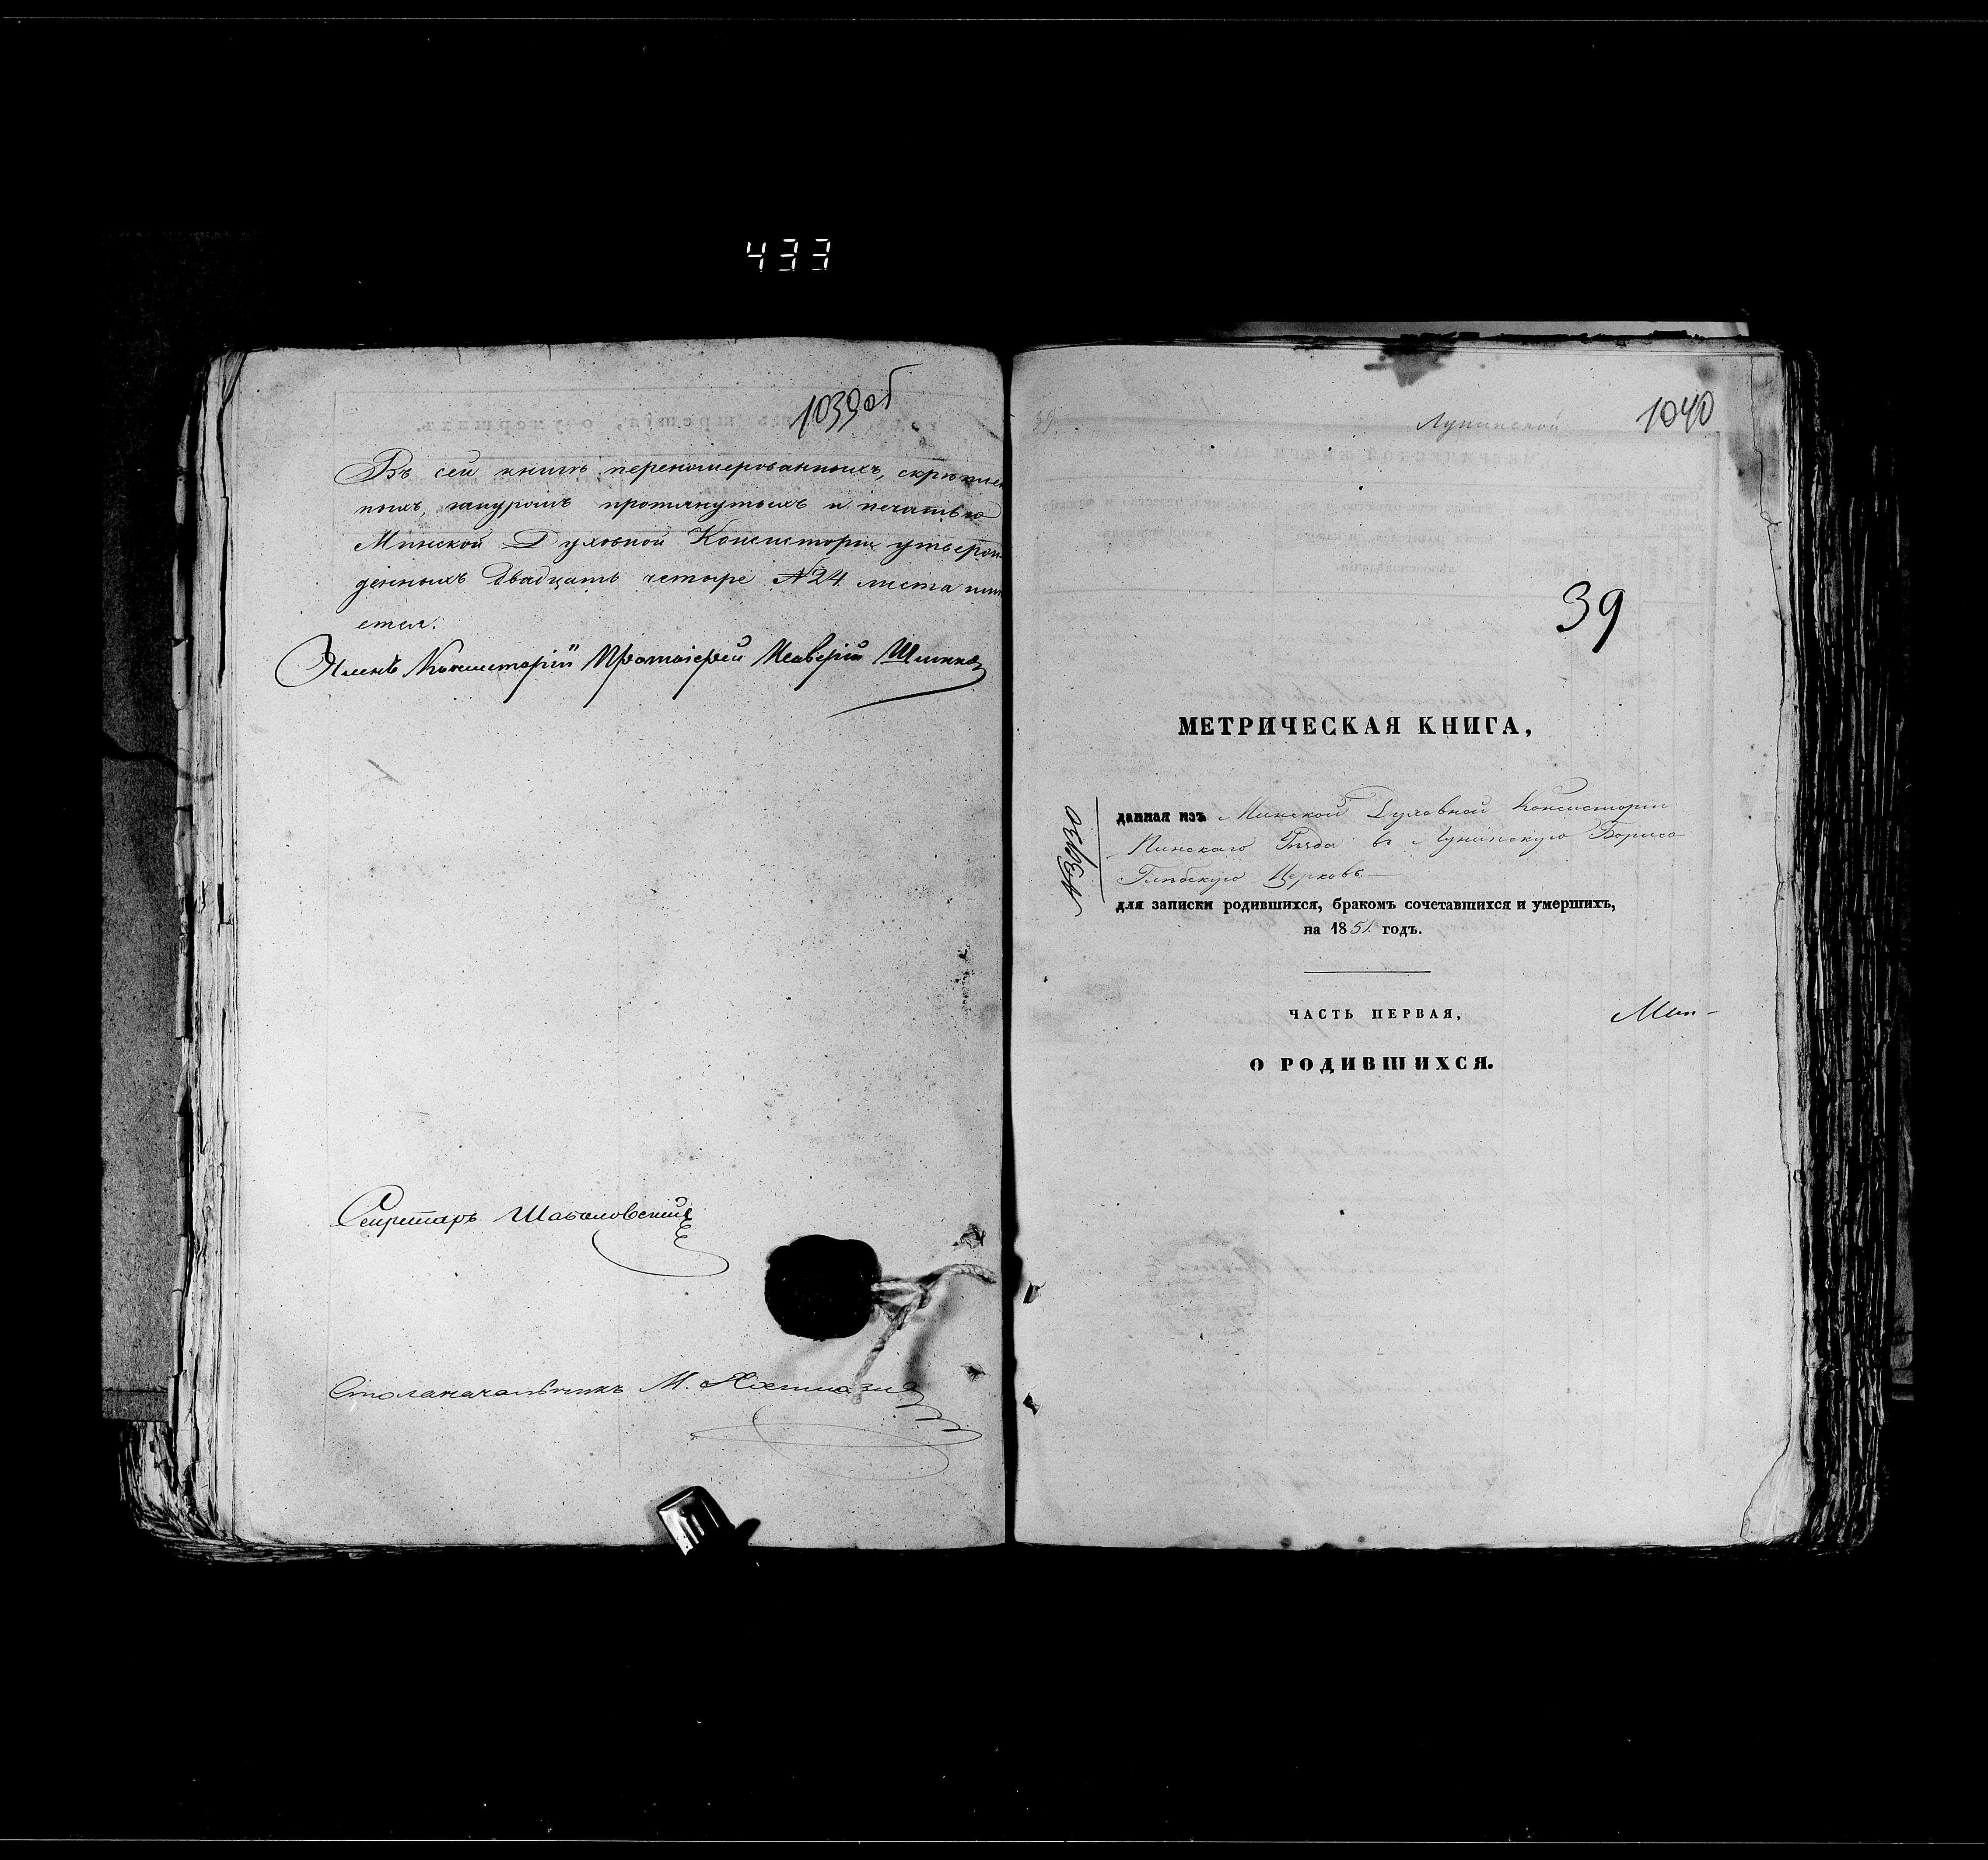 433
1039об
Въ сей книгѣ перенумерованныхъ, скрѣплен
ныхъ, шнуромъ протянутыхъ и печатью
Минской Духовной Консисторіи утверж
денныхъ двадцать четыре №24 листа имѣ
ется.
Членъ Консисторіи Протоіерей
Секретарь
Столоначальникъ М.
39.
Лунинской
1040
39
МЕТРИЧЕСКАЯ КНИГА,
данная изъ Минской Духовной Консисторіи
Пинскаго Уѣзда въ Лунинскую Борисо
Глѣбскую Церковь
для записки родившихся, бракомъ сочетавшихся и умершихъ,
на 1851 годъ.
ЧАСТЬ ПЕРВАЯ,
О РОДИВШИХСЯ.
Мин-